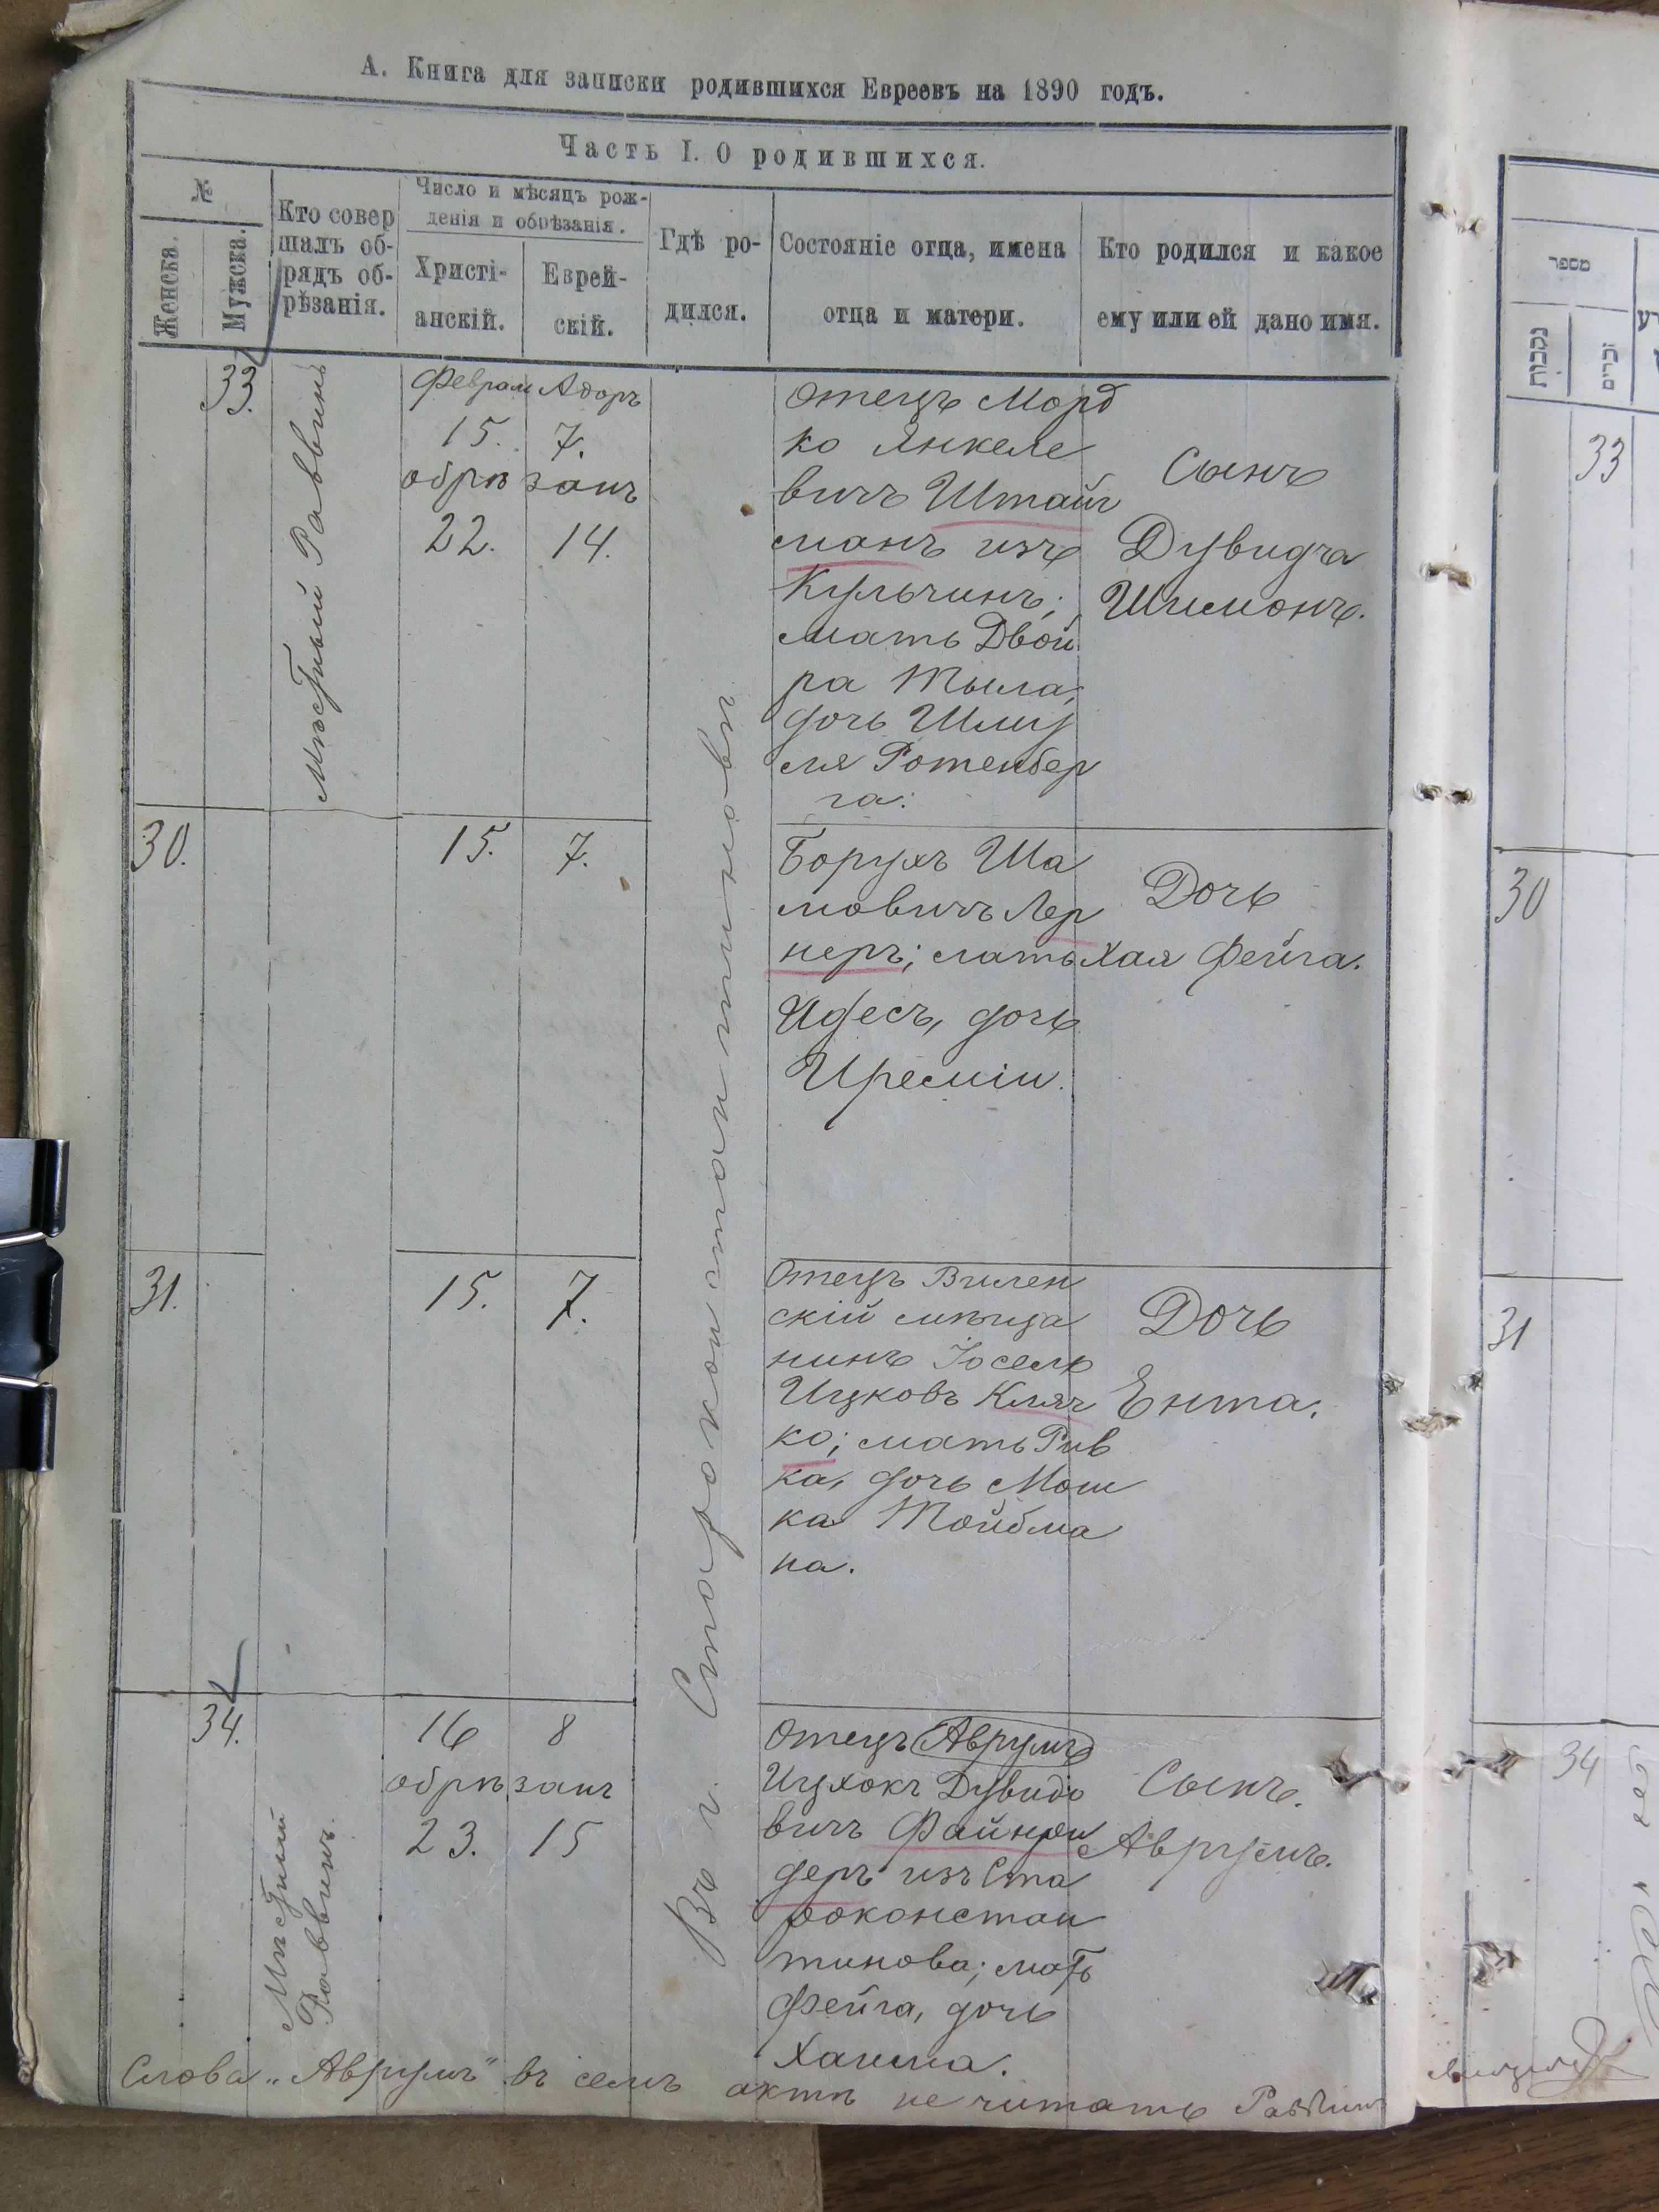 А. Книга для записки родившихся Евреевъ на 1890 годъ.
Часть I. О родившихся.
№
Женска.
Мужска.
Кто совер
шалъ об-
рядъ об-
рѣзанія.
Число и мѣсяцъ рож-
денія и обрѣзанія.
Христі-
анскій.
Еврей-
скій.
Гдѣ ро-
дился.
Состояніе отца, имена
отца и матери.
Кто родился и какое
ему или ей дано имя.
33.
Мѣстный Раввинъ
Феврал Адоръ
15. 7.
обрѣзанъ
22. 14.
Въ г. Староконстантиновѣ
Отецъ Морд
ко Янкеле
вичъ Штайг
манъ изъ
Кульчинъ;
мать Двой
ра Тыла,
дочь Шму
ля Ротенбер
га.
Сынъ
Дувидъ
Шимонъ.
30.
15. 7.
Борухъ Ша
мовичъ Лер
неръ; мать
Идесъ, дочь
Иреміи.
Дочь
Хая Фейга.
31.
15. 7.
Отецъ Вилен
скій мѣща
нинъ Іосель
Ицковъ Кляч
ко; мать Рив
ка, дочь Мош
ка Тойбма
на.
Дочь
Ента.
34.
Мѣстный
Раввинъ.
16 8
обрѣзанъ
23. 15
Отецъ Аврумъ
Ицхокъ Дувидо
вичъ
деръ изъ Ста
роконстан
тинова; мать
Фейга, дочь
Хаима.
Сынъ.
Аврумъ.
Слова „Аврумъ" въ семъ актѣ не читать Раввинъ
מספר
נקבות
זכרים
33
30
31
34